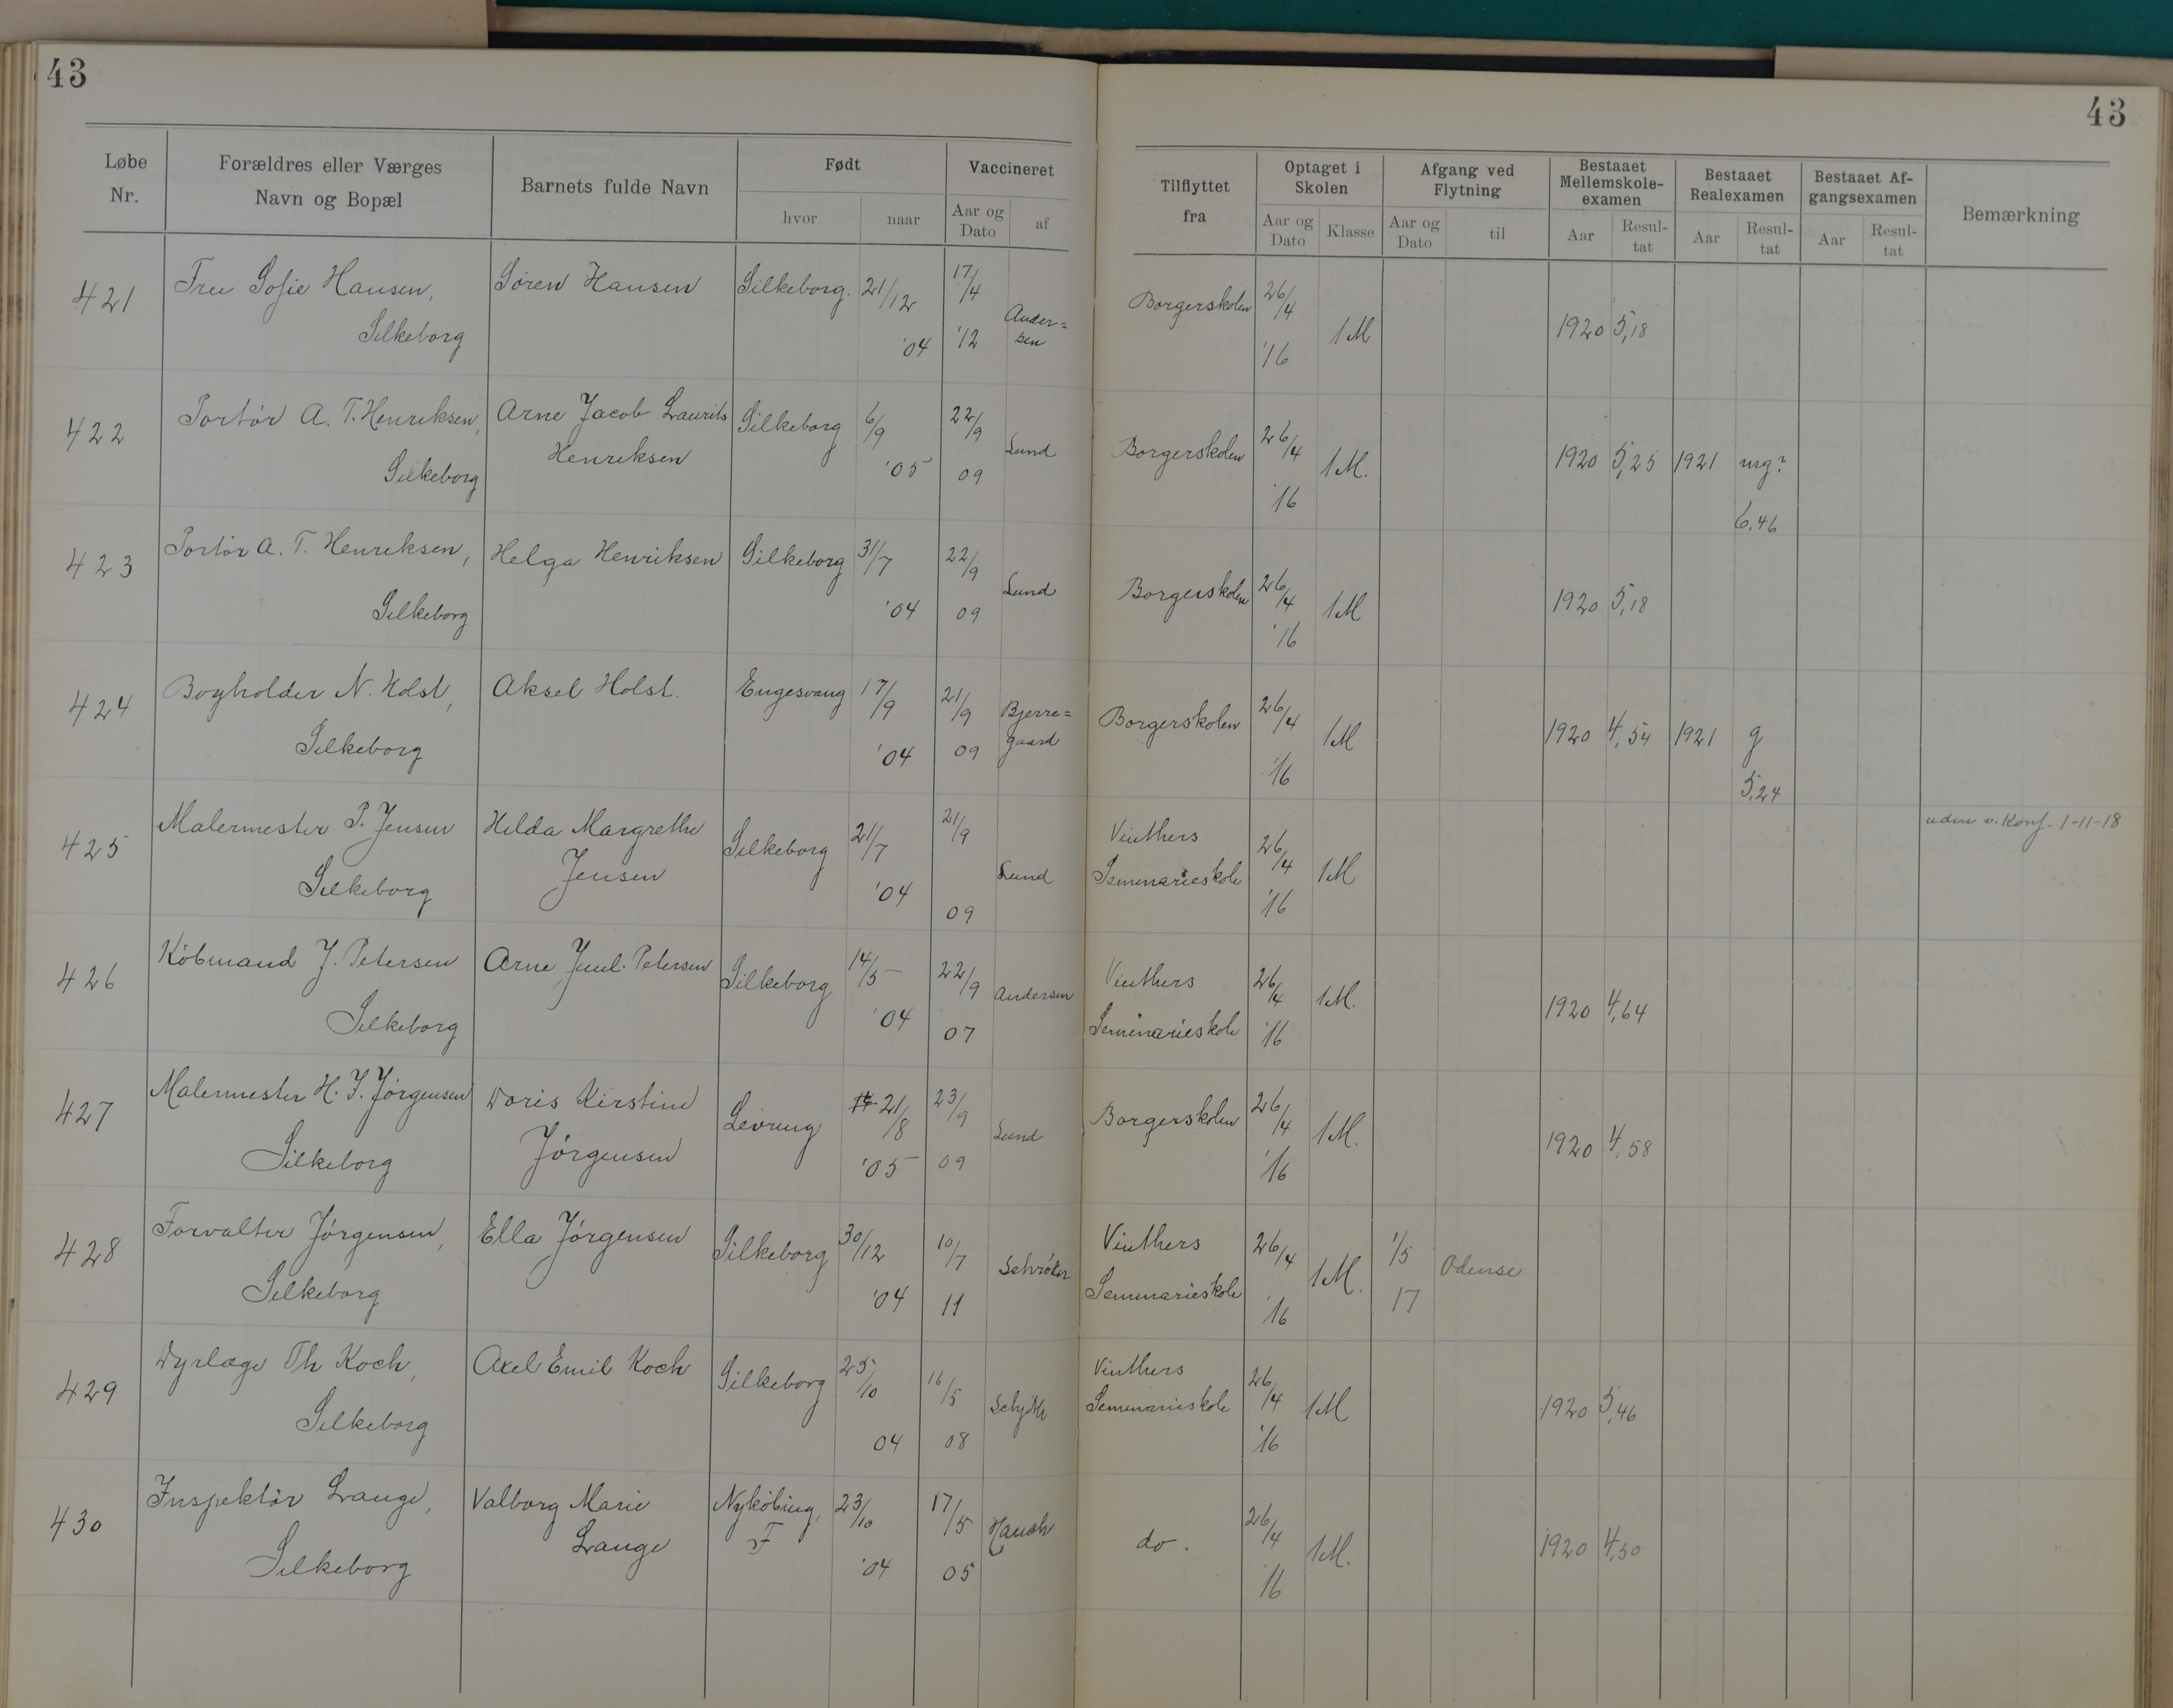 43
43
Løbe Nr.
Forældres eller Værges Navn og Bopæl
Barnets fulde Navn
Født
hvor
naar
Vaccineret
Aar og Dato
af
Tilflyttet fra
Optaget i Skolen
Aar og Dato
Klasse
Afgang ved Flytning
Aar og Dato
til
Bestaaet Mellemskole-examen
Aar
Resul-tat
Bestaaet Realexamen
Aar
Resul-tat
Bestaaet Af-gangsexamen
Aar
Resul-tat
Bemærkning
421 Fru Sofie Hansen, Søren Hansen Silkeborg. 21/12 17/4 Ander= Borgerskolen 26/4 1M 1920 5,18
Silkeborg '04 '12 sen '16
422 Portør A. T. Henriksen, Arne Jacob Laurits Silkeborg 6/9 22/9 Lund Borgerskolen 26/4 1M. 1920 5,25 1921 mg?
Silkeborg Henriksen '05 09 '16 6,46
423 Portør A. T. Henriksen, Helga Henriksen Silkeborg 31/7 22/9 Lund Borgerskolen 26/4 1M 1920 5,18
Silkeborg '04 09 '16
424 Bogholder N. Holst, Aksel Holst. Engesvang 17/9 21/9 Bjerre= Borgerskolen 26/4 1M 1920 4,54 1921 g
Silkeborg '04 09 gaard '16 5,24
425 Malermester P. Jensen Hilda Margrethe Silkeborg 21/7 21/9 Lund Vinthers 26/4 1M uden o. Konf. 1-11-18
Silkeborg Jensen '04 09 Seminarieskole '16
426 Købmand J. Petersen Arne Juul Petersen Silkeborg 14/5 22/9 Andersen Vinthers 26/4 1M. 1920 4,64
Silkeborg '04 07 Seminarieskole '16
427 Malermester H. J. Jørgensen Doris Kirstine Levring 21/8 23/9 Lund Borgerskolen 26/4 1M. 1920 4,58
Silkeborg Jørgensen '05 09 '16
428 Forvalter Jørgensen, Ella Jørgensen Silkeborg 30/12 10/7 Schrøder Vinthers 26/4 1M. 1/5 Odense
Silkeborg '04 11 Seminarieskole '16 17
429 Dyrlæge Th Koch, Axel Emil Koch Silkeborg 25/10 16/5 Vinthers 26/4 1M 1920 5,46
Silkeborg 04 08 Seminarieskole '16
430 Inspektør Lange, Valborg Marie Nykøbing, 23/10 17/5 Hauch do. 26/4 1M. 1920 4,50
Silkeborg Lange F '04 05 '16